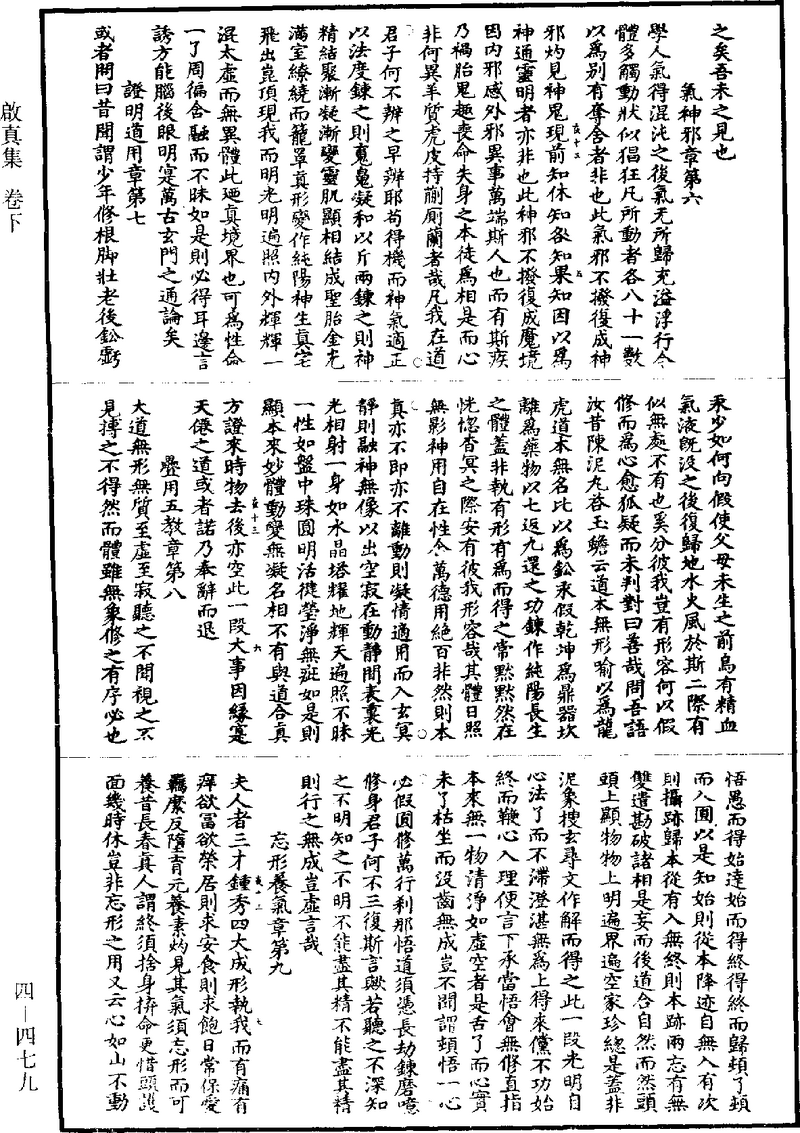 之矣吾未之見也
氣神邪章第六
學人氣得混沌之後氣无所歸充溢浮行令
體多觸動狀似猖狂凡所動者各八十一數
以爲別有奪舍者非也此氣邪不撥復成神
邪灼見神鬼現前知休知咎知果知因以爲
神通靈明者亦非也此神邪不撥復成魔境
因内邪感外邪異事萬端斯人也而有斯疾
乃禍胎鬼趣喪命失身之本徒爲相是而心
非何異羊質虎皮持蘭廁蘭者哉凡我在道
君子何不辨之早辨耶苟得機而神氣適正
以法度鍊之則魂魄凝和以斤兩鍊之則神
精結聚漸凝漸變靈肌顯相結成聖胎金光
滿室繚繞而籠罩真形變作純陽神生真宅
飛出崑頂現我而明光明遍照内外輝輝一
混太虛而無異體此廼真境界也可爲性命
一了周徧含融而不昧如是則必得耳邊言
誘方能腦後眼明寔萬古玄門之通論矣
證明道用章第七
或者問曰昔聞謂少年修根脚壯老後鈆虧
汞少如何向假使父母未生之前烏有精血
氣液旣没之後復歸地水火風於斯二際有
似無處不有也奚分彼我豈有形容何以假
修而爲心愈狐疑而未判對曰善哉問吾語
汝昔陳泥丸荅玉蟾云道本無形喻以爲龍
虎道本無名比以爲鈆汞假乾坤爲鼎器坎
離爲藥物以七返九還之功鍊作純陽長生
之體蓋非執有形有爲而得之常黙黙然在
恍惚杳冥之際安有彼我形容哉其體日照
無影神用自在性含萬德用絶百非然則本
真亦不即亦不離動則凝情適用而入玄冥
靜則融神無像以出空寂在動靜間表裏光
光相射一身如水晶塔耀地輝天遍照不昧
一性如盤中珠圓明活徤瑩淨無疵如是則
顯本來妙體動變無凝名相不有與道合真
方證來時物去後亦空此一段大事因緣寔
天僊之道或者諾乃奉辭而退
疊用五教章第八
大道無形無質至虛至寂聽之不聞視之不
見摶之不得然而體雖無象修之有序必也
悟愚而得始達始而得終得終而歸頓了頓
而入圓以是知始則從本降迹自無入有次
則攝跡歸本從有入無終則本跡兩忘有無
雙遣勘破諸相是妄而後道合自然而然頭
頭上顯物物上明遍界遍空家珍總是蓋非
泥象搜玄尋文作解而得之此一段光明自
心法了而不滯澄湛無爲上得來儻不功始
終而鞭心入理便言下承當悟會無修直指
本來無一物清淨如虛空者是舌了而心實
未了枯坐而没齒無成豈不聞謂頓悟一心
必假圓修萬行刹那悟道須憑長劫鍊磨噫
修身君子何不三復斯言歟若聽之不深知
之不明知之不明不能盡其精不能盡其精
則行之無成豈虛言哉
忘形養氣章第九
夫人者三才鍾秀四大成形執我而有痛有
痒欲富欲榮居則求安食則求飽日常保愛
羈縻反墮育元養素灼見其氣須忘形而可
養昔長春真人謂終須捨身拚命更惜頭護
面幾時休豈非忘形之用又云心如山不動
啟真集 卷下
四—四七九